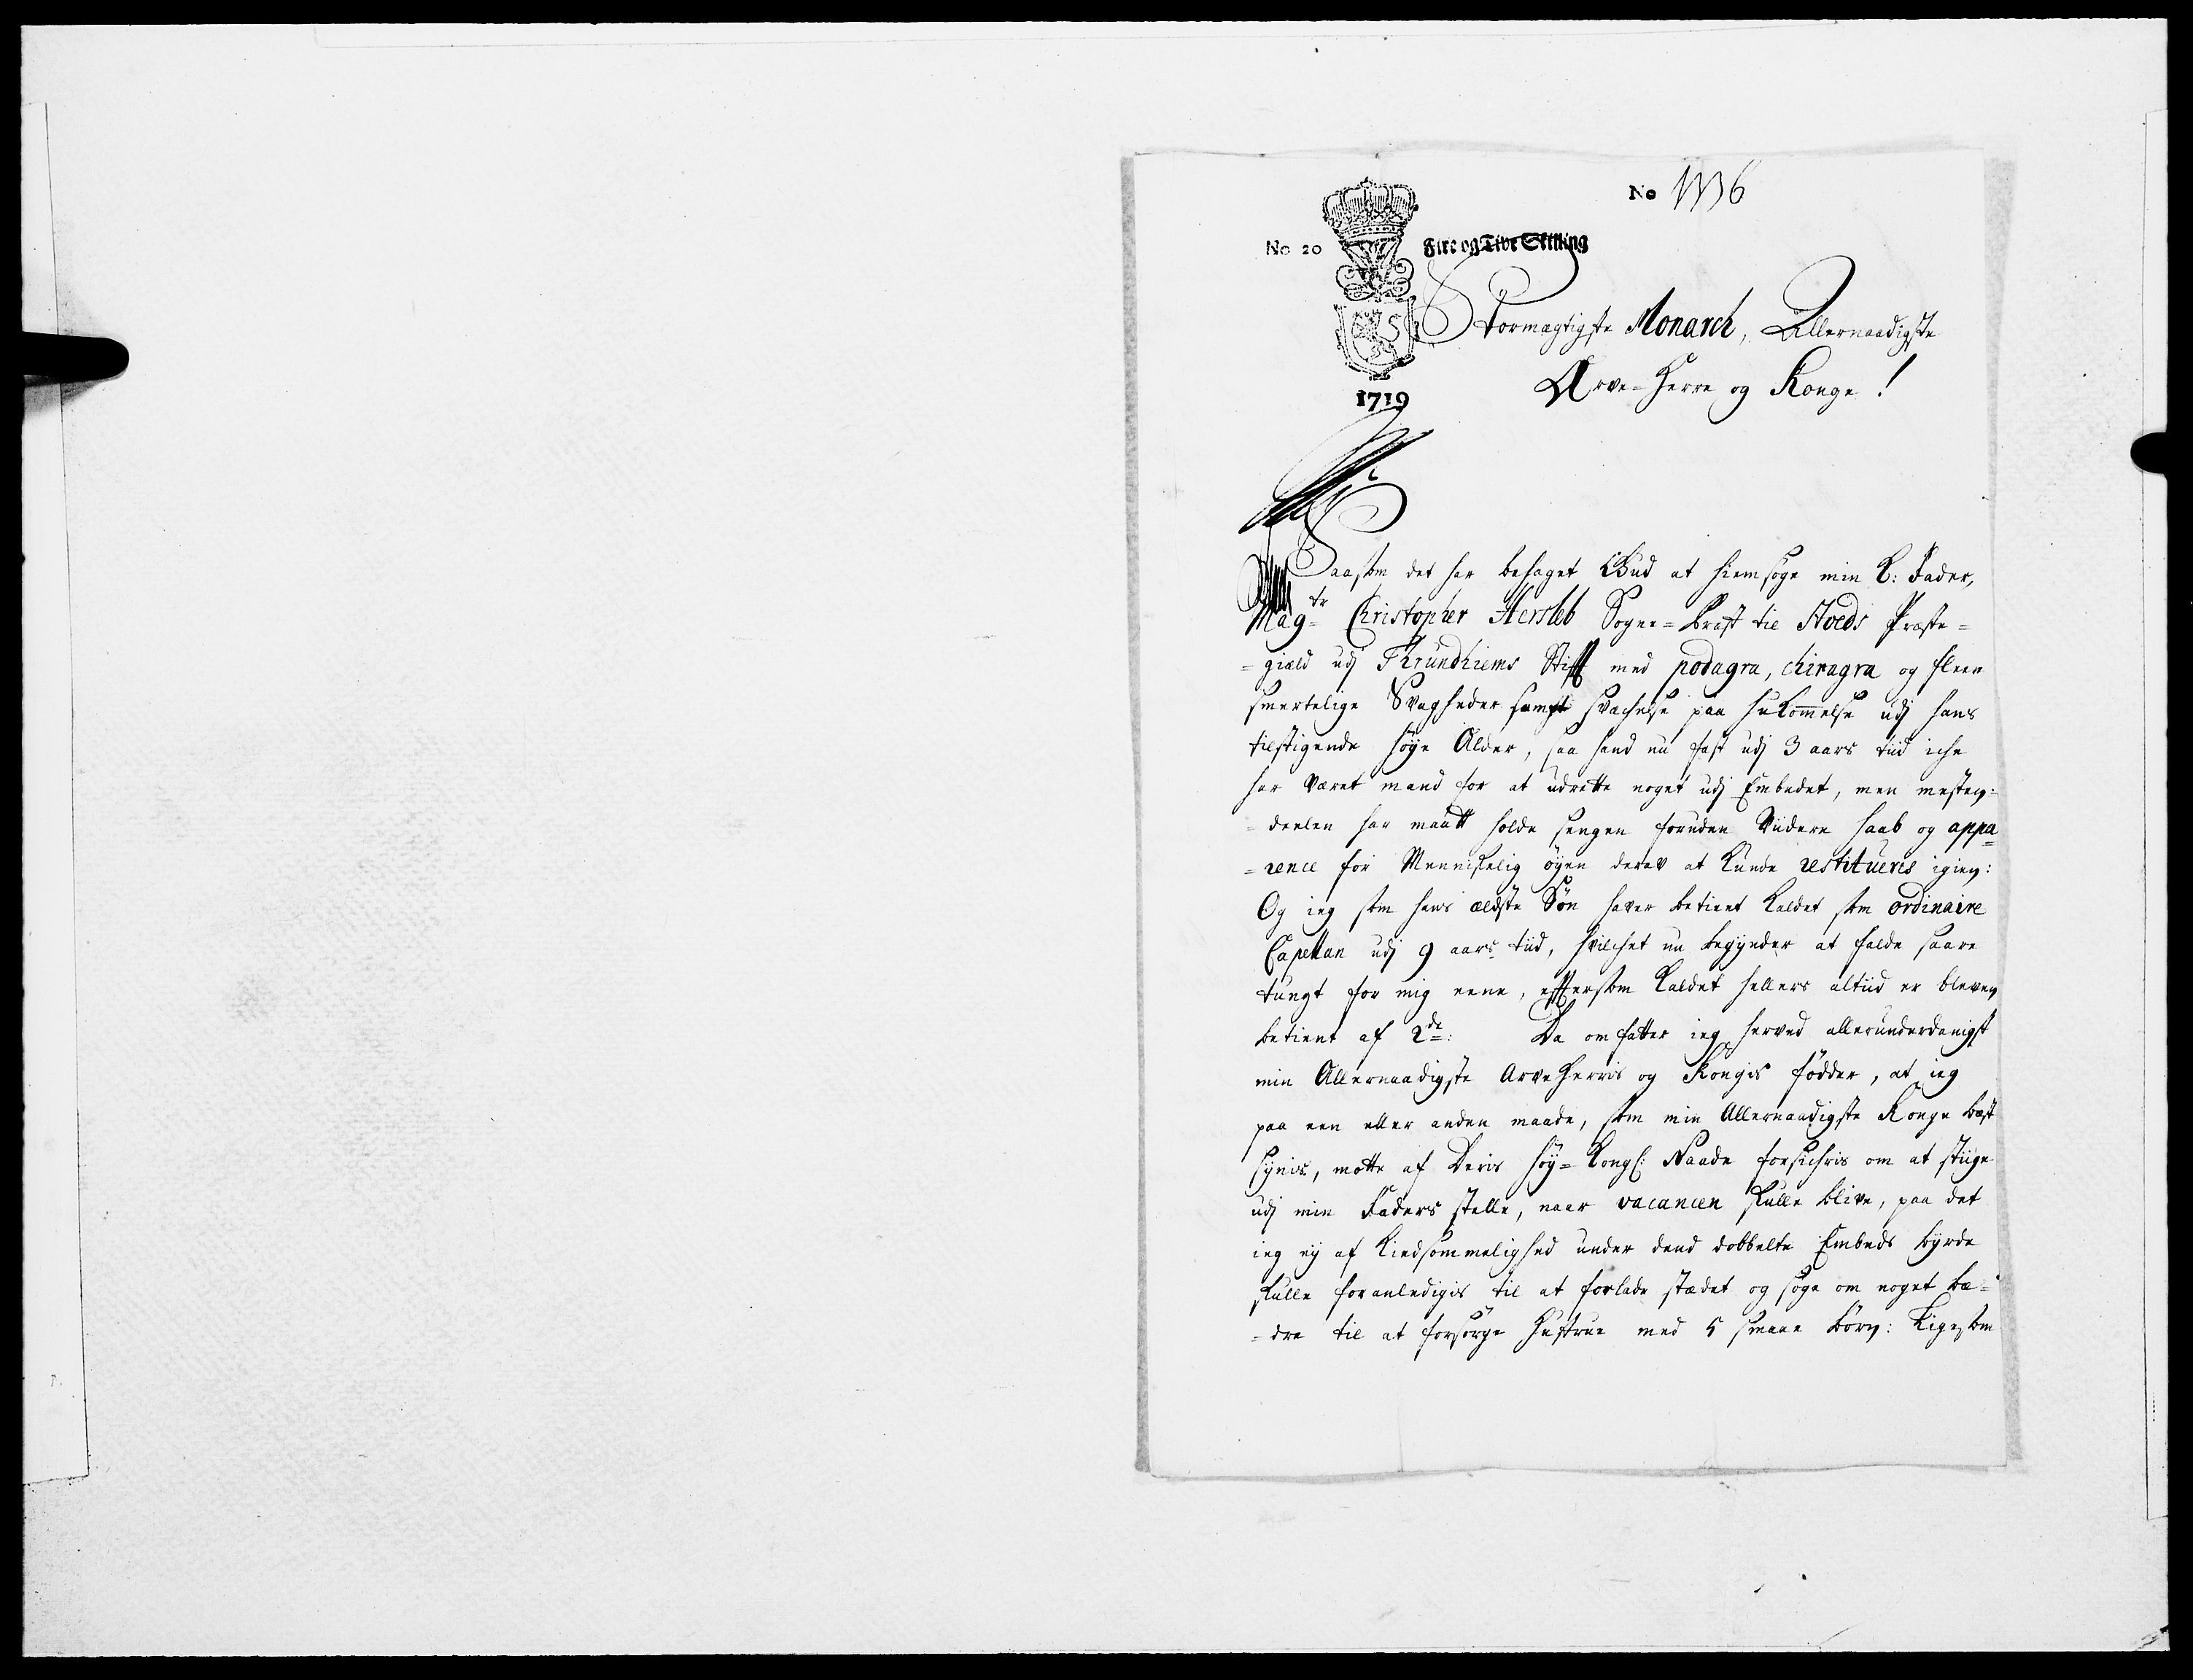 No 1336
No 20 Fire og Tive Skilling
Stormægtigste Monarch, Allernaadigste
Arve-Herre og Konge!
1719
Saasom det har behaget Gud at hiemsøge min K: Fader,
Magtr Christopher Hersleb Sogne-Præst til Stoeds Præste-
-giæld udj Thrundhiems Stifft med podagra, chiragra og fleere
smertelige Svagheder sampt svæchelse paa hukommelse udj hans
tilstigende høye Alder, saa hand nu fast udj 3 aars tiid iche
har været mand for at udrette noget udj Embedet, men mesten-
-deelen har maatt holde sengen foruden viidere haab og appa
-rence for Menniskelig øyen derav at kunde restitueris igien:
Og ieg som hans ældste Søn haver betient kaldet som ordinaire
Capellan udj 9 aars tiid, hvilchet nu begynder at falde saare
tungt for mig eene, effterssom kaldet hellers altiid er bleven
betient af 2de: Da omfatter ieg herved allerunderdanigst
min Allernaadigste Arve Herris og Kongis fødder, at ieg
paa een eller anden maade, som min Allernaadigste Konge bæst
synis, motte af Deris høy-kongl: Naade forsichris om at stiige
udj min Faders stelle, naar vacancen skulle blive, paa det
ieg ey af kiedsommelighed under dend dobbelte Embeds byrde
skulle foranledigis til at forlade stædet og søge om noget bæ-
-dre til at forsørge Hustrue med 5 smaae børn: Ligesom